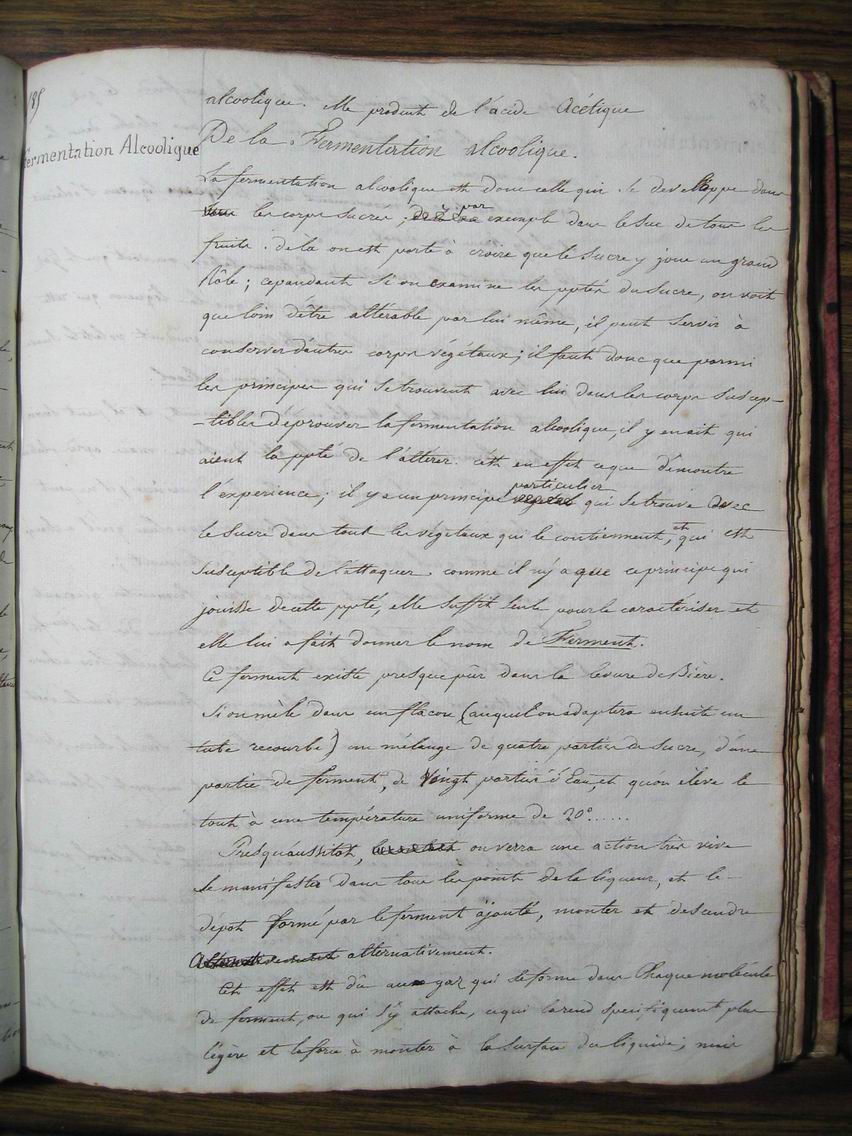 185
Fermentation Alcoolique
alcoolique. Elle produit de l'acide Acétique
De la Fermentation alcoolique.
La fermentation alcoolique est donc celle qui se developpe dans
les corps sucrés, par exemple dans le suc de tous les
fruits. de là on est porté à croire que le sucre y joue un grand
Rôle; cependant si on examine les pptés du sucre, on voit
que loin d'être altérable par lui même, il peut servir à
conserver d'autres corps végétaux; il faut donc que parmi
les principes qui se trouvent avec lui dans les corps suscep-
-tibles d'eprouver la fermentation alcoolique, il y en ait qui
aient la ppté de l'altérer. c'est en effet ce que démontre
l'experience; il y a un principe particulier qui se trouve avec
le sucre dans tous les végétaux qui le contiennent, et qui est
susceptible de l'attaquer. comme il n'y a que ce principe qui
jouisse de cette ppté, elle suffit seule pour le caractériser et
elle lui a fait donner le nom de Ferment.
Ce ferment existe presque pur dans la levure de Bière.
Si on mêle dans un flacon (auquel on adaptera ensuite un
tube recourbé) un mélange de quatre parties de sucre, d'une
partie de ferment, de Vingt parties d'Eau, et qu'on élève le
tout à une température uniforme de 20°......
Presqu'aussitot, on verra une action très vive
se manifester dans tous les points de la liqueur, et le
dépot formé par le ferment ajouté, monter et descendre
Alternativement alternativement.
Cet effet est dû au gaz qui se forme dans Chaque molécule
de ferment, ou qui s'y attache, ce qui la rend specifiquement plus
légère et la force à monter à la surface du liquide; mais